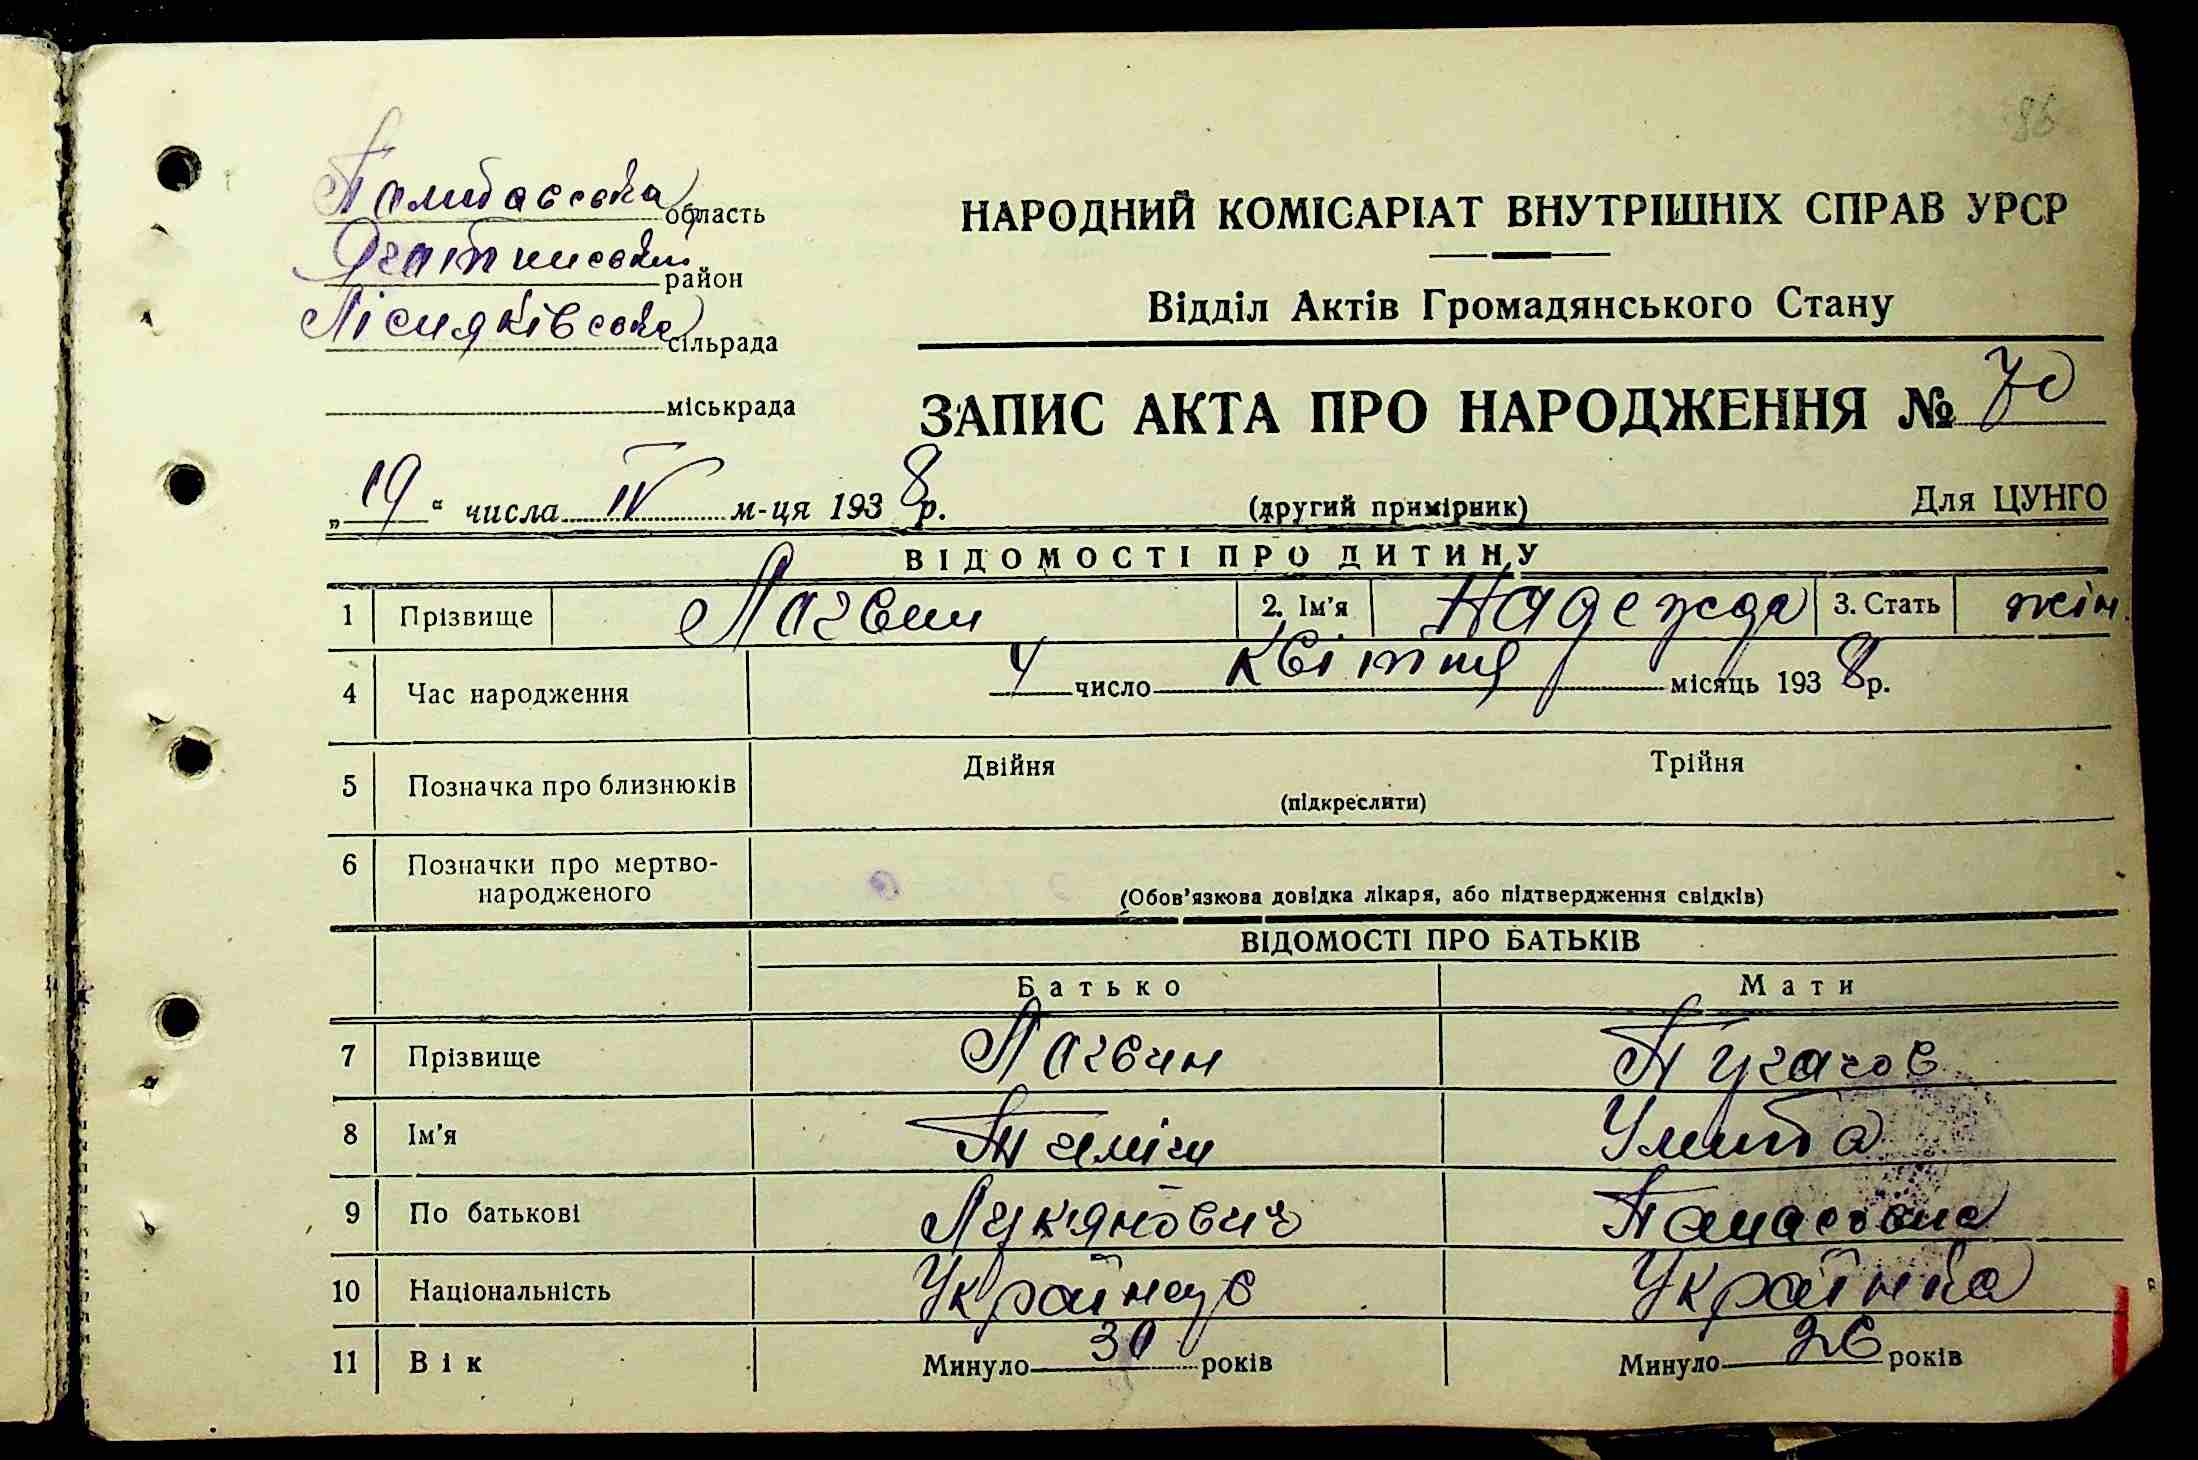 86
Полтавська область
НАРОДНИЙ КОМІСАРІАТ ВНУТРІШНІХ СПРАВ УРСР
Яготинський район
Лісняківська сільрада
Відділ Актів Громадянського Стану
міськрада
ЗАПИС АКТА ПРО НАРОДЖЕННЯ № 70
„19“ числа IV м-ця 1938 р.
(другий примірник)
Для ЦУНГО
ВІДОМОСТІ ПРО ДИТИНУ
1 Прізвище Лагвин 2. Ім'я Надежда 3. Стать жін.
4 Час народження 4 число квітня місяць 1938 р.
5 Позначка про близнюків Двійня Трійня
(підкреслити)
6 Позначки про мертво-
народженого
(Обов'язкова довідка лікаря, або підтвердження свідків)
ВІДОМОСТІ ПРО БАТЬКІВ
Батько Мати
7 Прізвище Лагвин Пугачов
8 Ім'я Улита
9 По батькові Лук'янович Панасовна
10 Національність Українець Українка
11 Вік Минуло 30 років Минуло 26 років